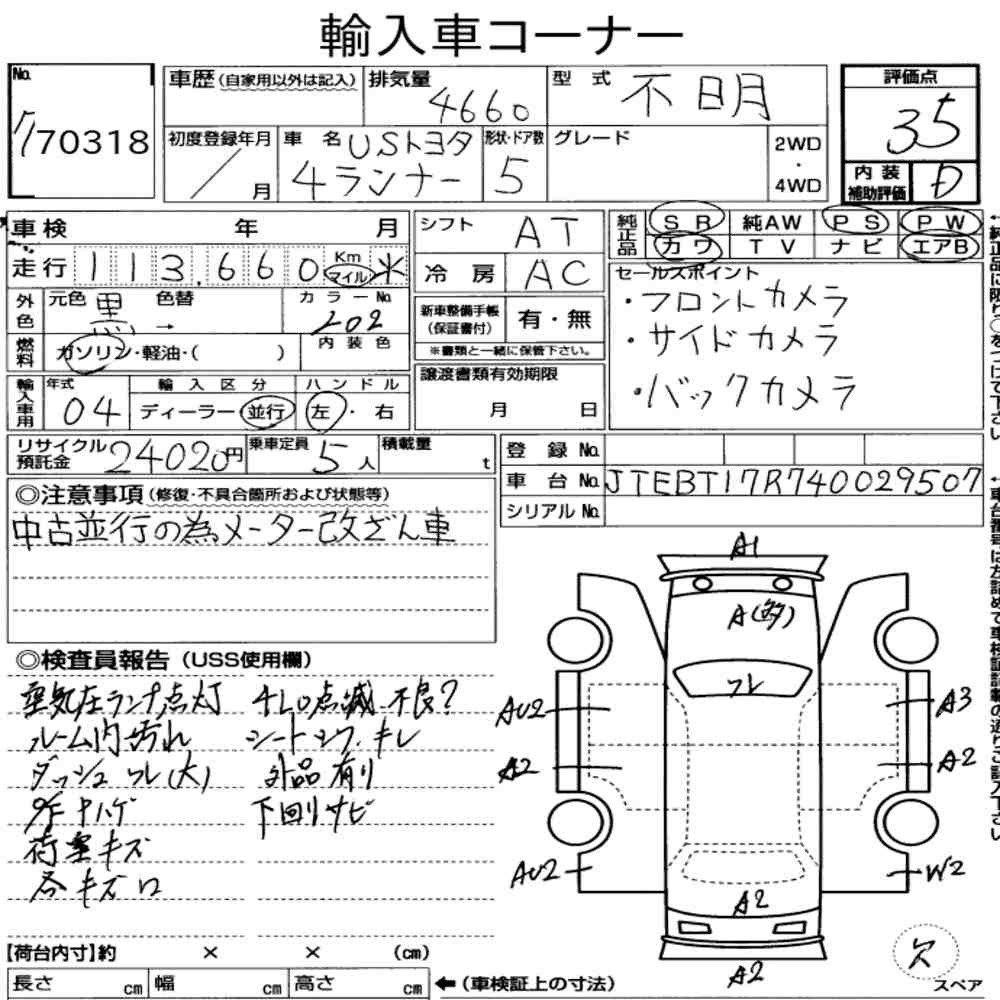 輸入車コーナー
No. 770318
車歴 (自家用以外は記入) 排気量 4660 型式 不明 評価点 3.5
初度登録年月 / 月 車名 USトヨタ 4ランナー 形状・ドア数 5 グレード 2WD・4WD 内装補助評価 D
車検 年 月
走行 113,660 Km マイル ※
外色 元色 黒 → 色替 カラーNo. 202
燃料 ガソリン・軽油・( ) 内装色
輸入車用 年式 04 輸入区分 ディーラー・並行 ハンドル 左・右
シフト AT
冷房 AC
新車整備手帳(保証書付) 有・無
※書類と一緒に保管下さい。
譲渡書類有効期限
月 日
純正品 SR 純AW PS PW
カワ TV ナビ エアB
セールスポイント
・フロントカメラ
・サイドカメラ
・バックカメラ
リサイクル預託金 24020円 乗車定員 5人 積載量 t
登録No.
車台No. JTEBT17R740029507
シリアルNo.
◎注意事項 (修復・不具合箇所および状態等)
中古並行の為メーター改ざん車
◎検査員報告 (USS使用欄)
空気圧ランプ点灯 4Lo点滅 不良?
ルーム内汚れ シートシワ.キレ
ダッシュワレ(大) 外品有り
下回りサビ
荷室キズ
各キズロ
A1
A(多)
ワレ
AU2 A3
A2 A2
AU2 W2
A2
A2
欠
スペア
【荷台内寸】約 × × (cm)
長さ cm 幅 cm 高さ cm ←(車検証上の寸法)